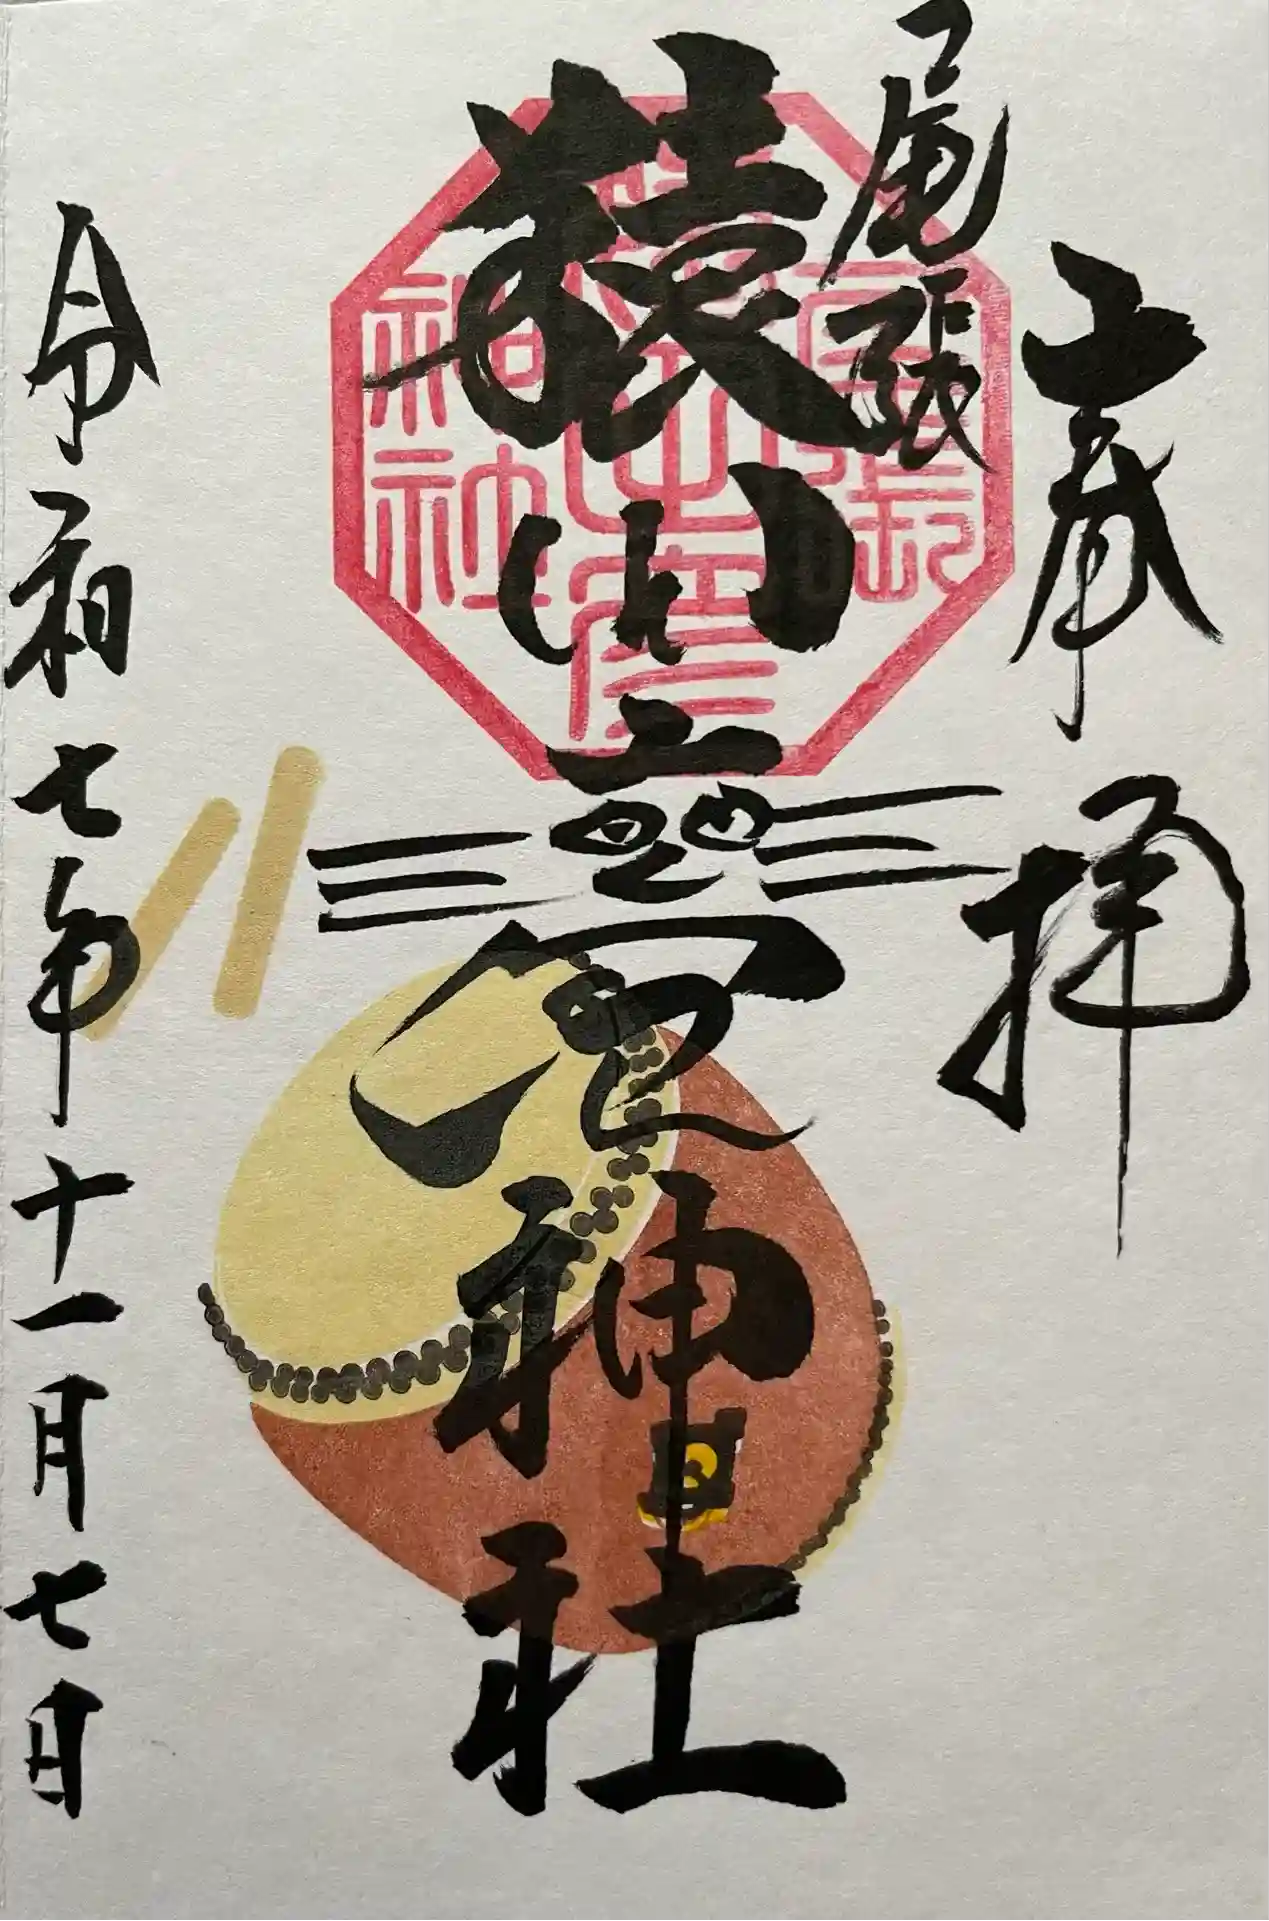 奉拝
尾張
猿田彦神社
令和七年十一月七日
尾張
猿田彦
神社